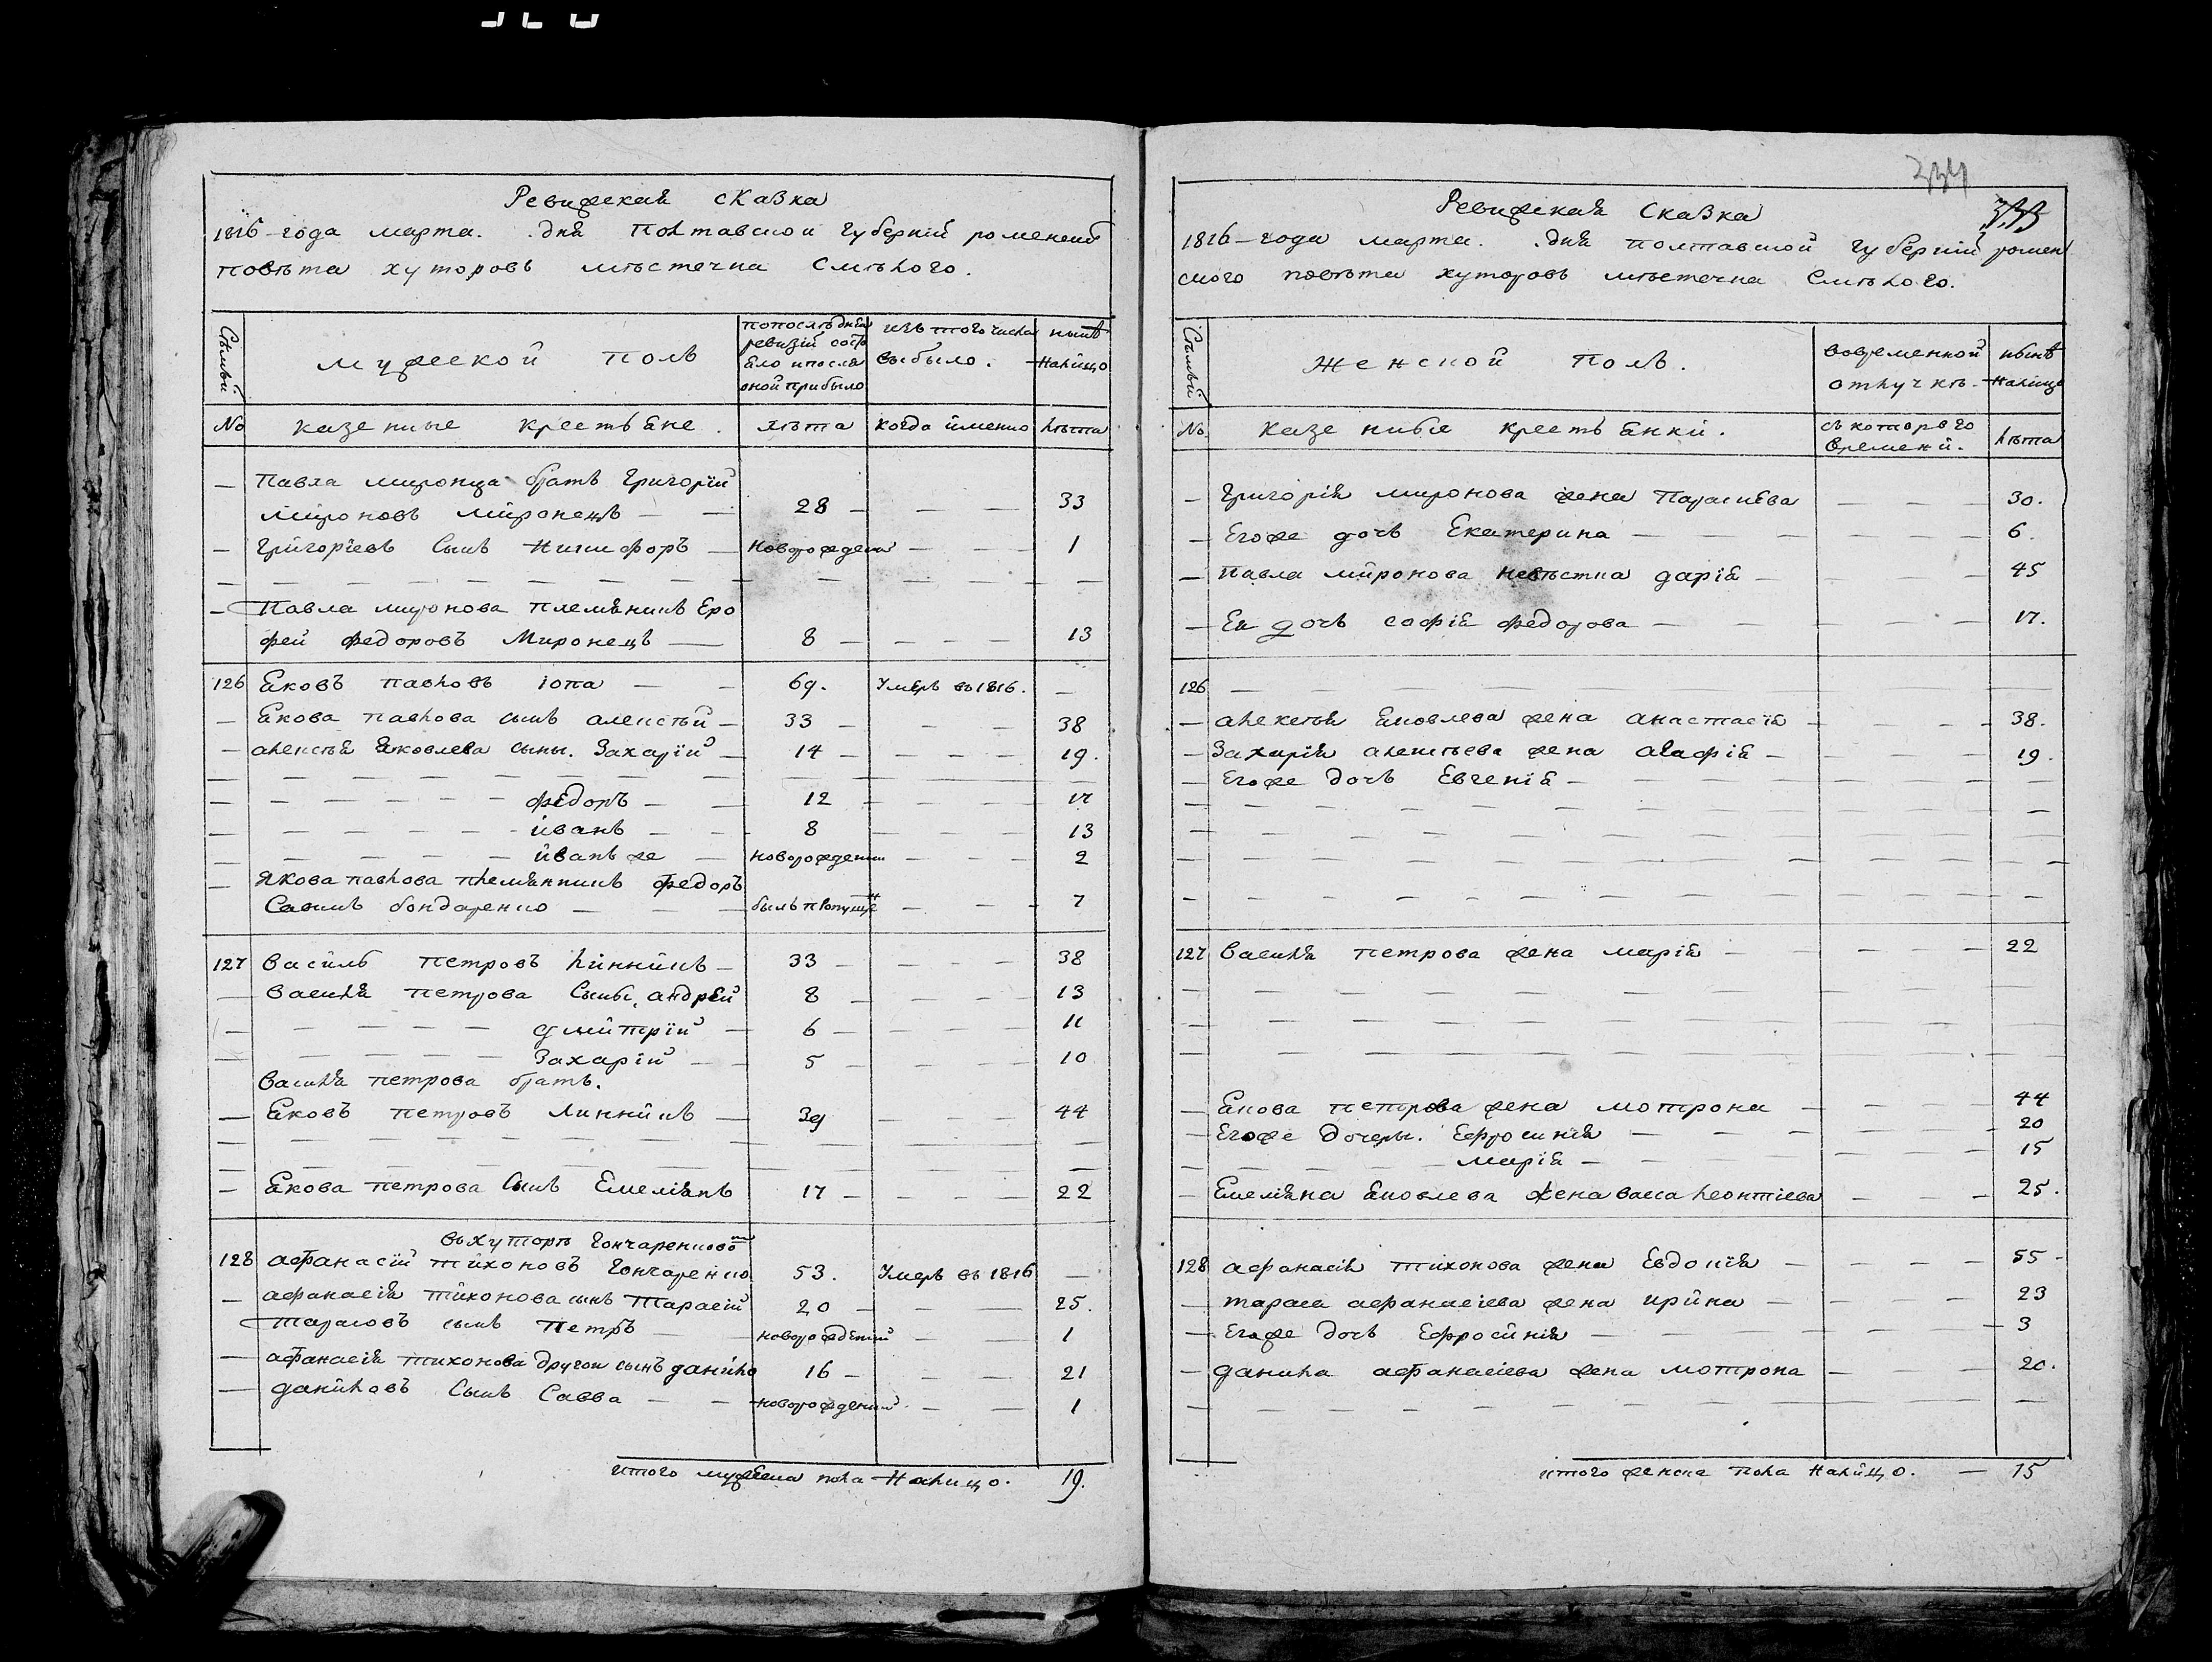 Ревижская сказка
1816 года марта. дня Полтавской губерній роменскаго
повѣта хуторовъ мѣстечка Смѣлого.
Сѣмьи
мужеской полъ
попослѣдней
ревизій состо
яло ипосля
оной прибыло
изъ того числа
выбыло.
нынѣ
налицо
№ казенные крестьяне. лѣта когда именно лѣта
— Павла миронца братъ Григорій
мироновъ миронецъ — — 28 — — — 33
— Григоріевъ сынъ Никифоръ — новорожденый — — 1
— Павла миронова племянникъ Еро
фей федоровъ Миронецъ — 8 — — — 13
126 Яковъ павловъ іопа — — 69. Умеръ въ 1816. —
— Якова павлова сынъ алексѣй — 33 — — — 38
— алексѣя Яковлева сыны. Захарій — 14 — — — 19.
— — — — — — — федоръ — — 12 — — — 17
— — — — — — — иванъ — — 8 — — — 13
— — — — — — иванъ же — новорожденый — — — 2
— Якова павлова племянникъ федоръ
Савинъ бондаренко — — — былъ пропущен — — — 7
127 Василь петровъ линникъ — 33 — — — — 38
— Василя петрова сыны, андрей 8 — — — — 13
— — — — — дмитрій — 6 — — — — 11
— — — — — Захарій — — 5 — — — — 10
Василя петрова братъ.
— Яковъ петровъ линникъ — 39 — — — 44
— Якова петрова сынъ Емеліянъ 17 — — — — 22
въ хуторѣ гончаренковомъ
128 афанасій тихоновъ гончаренко 53. Умеръ въ 1816 —
— афанасія тихонова сынъ тарасій 20 — — — 25.
тарасовъ сынъ петръ — новорожденый — — 1
— афанасія тихонова другой сынъ данило 16 — — — 21
— даниловъ сынъ Савва — — новорожденый — — 1
итого мужеска пола налицо. 19.
334
333
Ревижская Сказка
1816 года марта. дня полтавской губерній ромен
ского повѣта хуторовъ мѣстечка Смѣлого.
Сѣмьи
Женской полъ.
вовременной
отлучкѣ.
нынѣ
налицо
№ казенные крестьянки.
съ которого
времени.
лѣта
— Григорія миронова жена Параскева — — — 30.
— Егоже дочь Екатерина — — — — — — 6.
— Павла миронова невѣстка дарія — — — 45
— Ея дочь софія федорова — — — — — 17.
126 — — — —
— алексѣя Яковлева жена анастасія — — — 38.
— Захарія алексѣева жена агафія — — — — 19.
— Егоже дочь Евгенія — — — — —
127 Василя петрова жена марія — — — — 22
— Якова петрова жена мотрона — — — 44
— Егоже дочеры. Ефросинія — — — — 20
— — — — — марія — — — — 15
— Емеліяна Яковлева жена васса леонтіева — — 25.
128 афанасія тихонова жена Евдокія — — — — 55 —
— тараса афанасіева жена ирина — — — — 23
— Егоже дочь Ефросинія — — — — — 3
— данила афанасіева жена мотрона — — — 20.
итого женска пола налицо. — 15